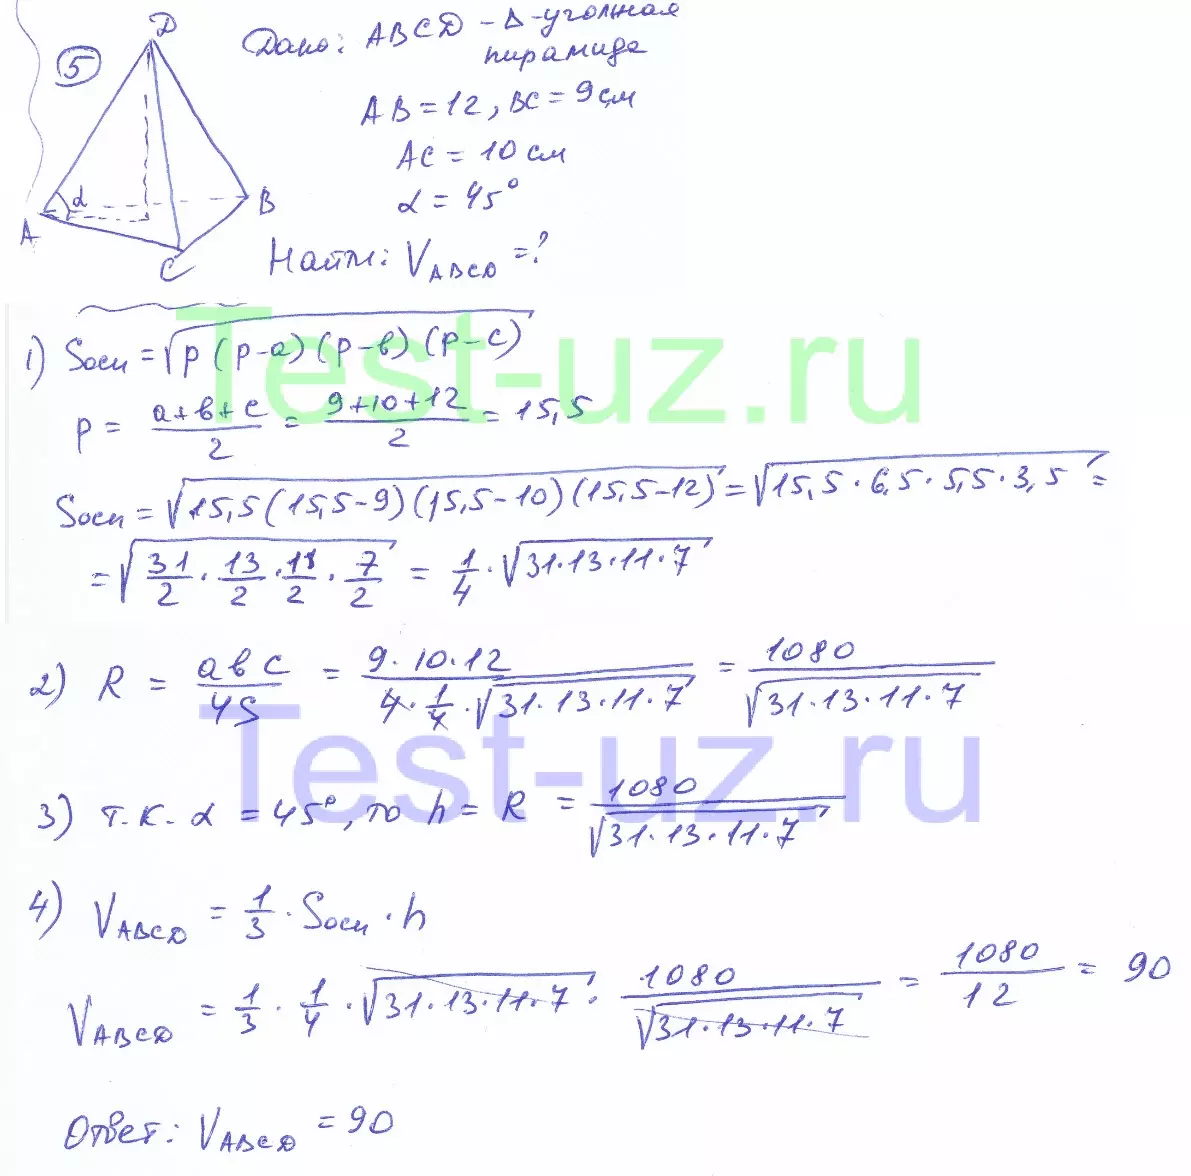 5
D
A
α
B
C
Дано: ABCD - Δ-угольная
пирамида
AB = 12, BC = 9 см
AC = 10 см
α = 45°
Найти: V_ABCD = ?
Test-uz.ru
1) Sосн = √(p(p-a)(p-в)(p-c))
p = (a+в+c)/2 = (9+10+12)/2 = 15,5
Sосн = √(15,5(15,5-9)(15,5-10)(15,5-12)) = √(15,5·6,5·5,5·3,5) =
= √(31/2 · 13/2 · 11/2 · 7/2) = 1/4 · √(31·13·11·7)
2) R = aвc/4S = 9·10·12/(4·1/4·√(31·13·11·7)) = 1080/√(31·13·11·7)
Test-uz.ru
3) т.к. α = 45°, то h = R = 1080/√(31·13·11·7)
4) V_ABCD = 1/3 · Sосн · h
V_ABCD = 1/3 · 1/4 · √(31·13·11·7) · 1080/√(31·13·11·7) = 1080/12 = 90
Ответ: V_ABCD = 90